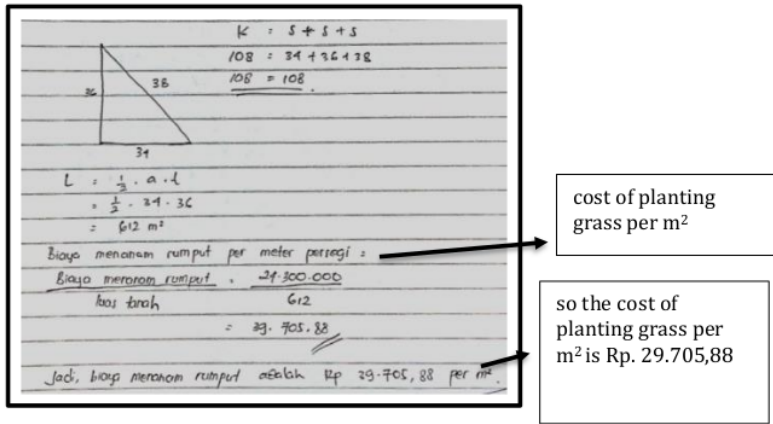 K = s + s + s
108 = 34 + 36 + 38
108 = 108.
36
38
34
L = 1/2 . a . t
= 1/2 . 34 . 36
= 612 m²
Biaya menanam rumput per meter persegi =
Biaya menanam rumput = 24.300.000
luas tanah 612
= 39.705,88
Jadi, biaya menanam rumput adalah Rp 39.705,88 per m².
cost of planting
grass per m²
so the cost of
planting grass per
m² is Rp. 29.705,88